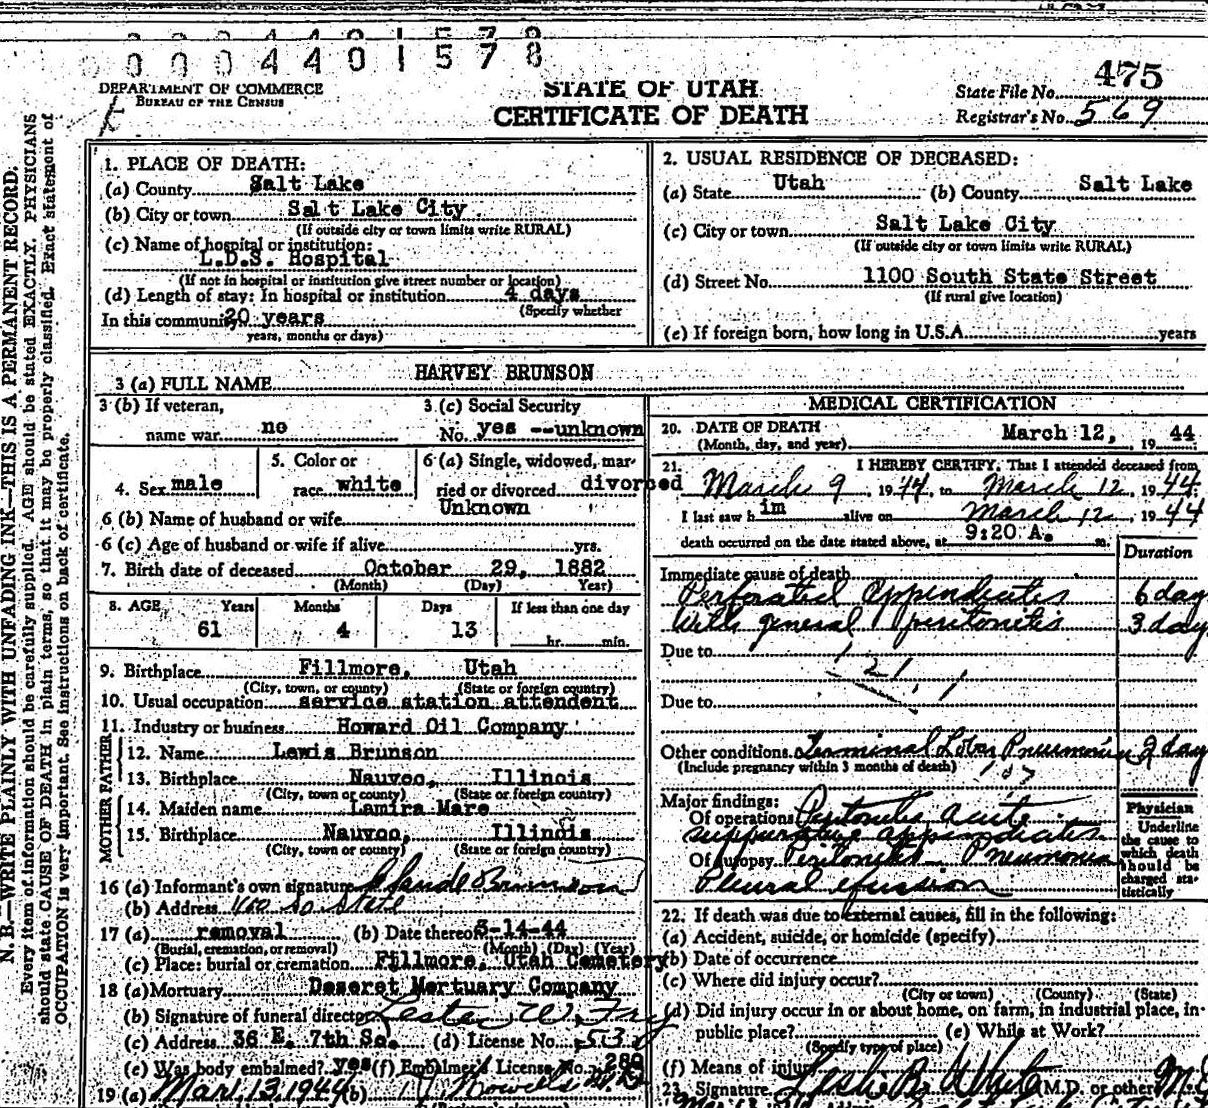 0004401578
DEPARTMENT OF COMMERCE
BUREAU OF THE CENSUS
STATE OF UTAH
CERTIFICATE OF DEATH
State File No. 475
Registrar's No. 569
N. B.—WRITE PLAINLY WITH UNFADING INK—THIS IS A PERMANENT RECORD.
Every item of information should be carefully supplied. AGE should be stated EXACTLY. PHYSICIANS
should state CAUSE OF DEATH in plain terms, so that it may be properly classified. Exact statement of
OCCUPATION is very important. See instructions on back of certificate.
1. PLACE OF DEATH:
(a) County Salt Lake
(b) City or town Salt Lake City
(If outside city or town limits write RURAL)
(c) Name of hospital or institution:
L.D.S. Hospital
(If not in hospital or institution give street number or location)
(d) Length of stay: In hospital or institution 4 days
(Specify whether
In this community 20 years
years, months or days)
2. USUAL RESIDENCE OF DECEASED:
(a) State Utah (b) County Salt Lake
(c) City or town Salt Lake City
(If outside city or town limits write RURAL)
(d) Street No. 1100 South State Street
(If rural give location)
(e) If foreign born, how long in U.S.A. years
3 (a) FULL NAME HARVEY BRUNSON
3 (b) If veteran,
name war no
3 (c) Social Security
No. yes --unknown
4. Sex male
5. Color or
race white
6 (a) Single, widowed, mar-
ried or divorced divorced
6 (b) Name of husband or wife Unknown
6 (c) Age of husband or wife if alive yrs.
7. Birth date of deceased October 29, 1882
(Month) (Day) Year)
8. AGE Years Months Days If less than one day
61 4 13 hr. min.
9. Birthplace Fillmore, Utah
(City, town, or county) (State or foreign country)
10. Usual occupation service station attendent
11. Industry or business Howard Oil Company
FATHER
12. Name Lewis Brunson
13. Birthplace Nauvoo, Illinois
(City, town or county) (State or foreign country)
MOTHER
14. Maiden name Lamira Mare
15. Birthplace Nauvoo, Illinois
(City, town or county) (State or foreign country)
16 (a) Informant's own signature Claude Brunson
(b) Address 1100 So State
17 (a) removal (b) Date thereof 3-14-44
(Burial, cremation, or removal) (Month) (Day) (Year)
(c) Place: burial or cremation Fillmore, Utah Cemetery
18 (a) Mortuary Deseret Mortuary Company
(b) Signature of funeral director Lester W. Fry
(c) Address 36 E. 7th So. (d) License No. 53
(e) Was body embalmed? yes (f) Embalmer's License No. 280
19 (a) Mar. 13, 1944 (b)
MEDICAL CERTIFICATION
20. DATE OF DEATH
(Month, day, and year) March 12, 1944
21. I HEREBY CERTIFY, That I attended deceased from
March 9, 1944, to March 12, 1944.
I last saw him alive on March 12, 1944
death occurred on the date stated above, at 9:20 A. m.
Duration
Immediate cause of death
Perforated Appendicites 6 day
With general Peritonitis 3 day
Due to
121.1
Due to
Other conditions Terminal Lobar Pneumonia 2 day
(Include pregnancy within 3 months of death) 107
Major findings:
Of operations Peritonitis acute
suppurative appendicites
Of autopsy Peritonitis - Pneumonia
Pleural effusion
Physician
Underline
the cause to
which death
should be
charged sta-
tistically
22. If death was due to external causes, fill in the following:
(a) Accident, suicide, or homicide (specify)
(b) Date of occurrence
(c) Where did injury occur?
(City or town) (County) (State)
(d) Did injury occur in or about home, on farm, in industrial place, in-
public place? (e) While at Work?
(Specify type of place)
(f) Means of injury
23. Signature Leslie R. White M.D. or other M.D.